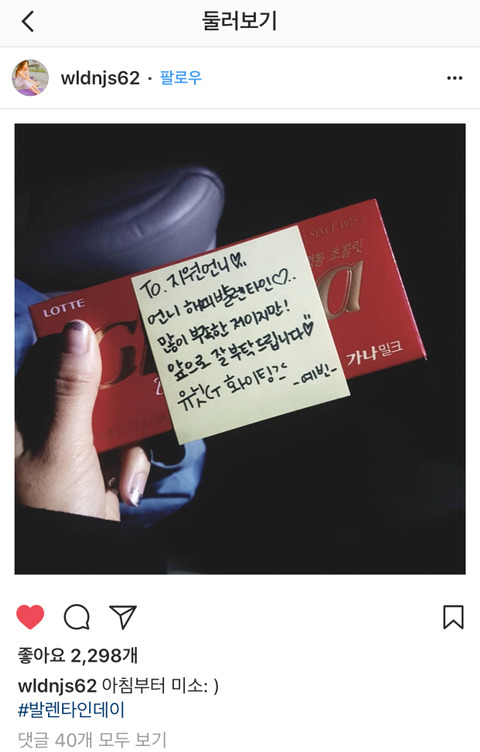 둘러보기
wldnjs62 · 팔로우
SINCE 1975
정통 초콜릿
LOTTE
a
가나 밀크
To. 지원언니♡..
언니 해피발렌타인♡..
많이 부족한 저이지만!
앞으로 잘 부탁드립니다♡
유닛G 화이팅>< -예빈-
좋아요 2,298개
wldnjs62 아침부터 미소: )
#발렌타인데이
댓글 40개 모두 보기